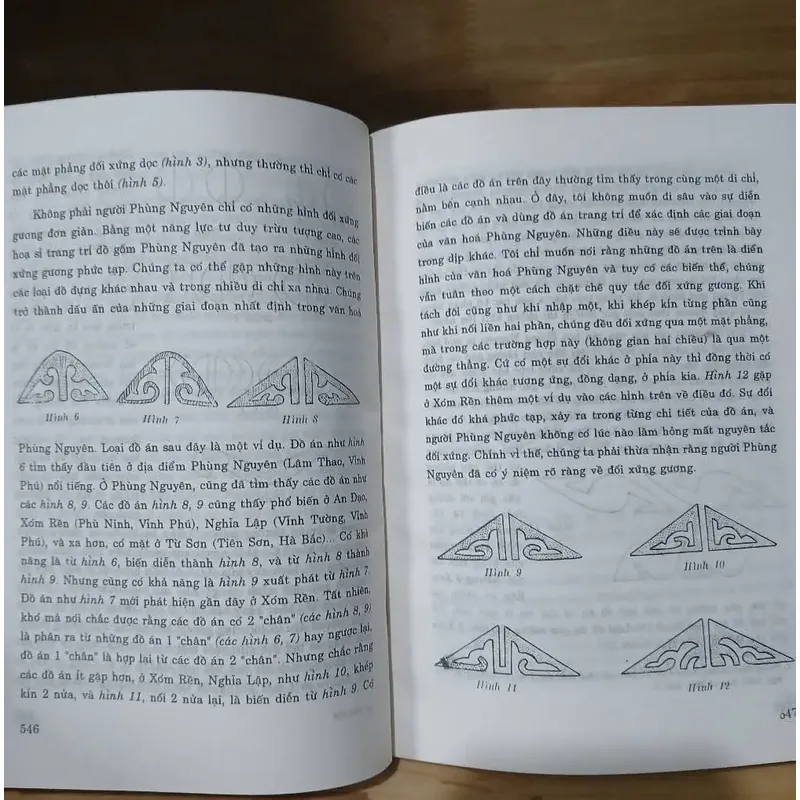 các mặt phẳng đối xứng dọc (hình 3), nhưng thường thì chỉ có các
mặt phẳng dọc thôi (hình 5).
Không phải người Phùng Nguyên chỉ có những hình đối xứng
gương đơn giản. Bằng một năng lực tư duy trừu tượng cao, các
hoạ sĩ trang trí đồ gốm Phùng Nguyên đã tạo ra những hình đối
xứng gương phức tạp. Chúng ta có thể gặp những hình này trên
các loại đồ đựng khác nhau và trong nhiều di chỉ xa nhau. Chúng
trở thành dấu ấn của những giai đoạn nhất định trong văn hoá
Hình 6
Hình 7
Hình 8
Phùng Nguyên. Loại đồ án sau đây là một ví dụ. Đồ án như hình
6 tìm thấy đầu tiên ở địa điểm Phùng Nguyên (Lâm Thao, Vĩnh
Phú) nổi tiếng. Ở Phùng Nguyên, cũng đã tìm thấy các đồ án như
các hình 8, 9. Các đồ án hình 8, 9 cũng thấy phổ biến ở An Đạo,
Xóm Rền (Phù Ninh, Vĩnh Phú), Nghĩa Lập (Vĩnh Tường, Vĩnh
Phú), và xa hơn, có mặt ở Từ Sơn (Tiên Sơn, Hà Bắc)... Có khả
năng là từ hình 6, biến diễn thành hình 8, và từ hình 8 thành
hình 9. Nhưng cũng có khả năng là hình 9 xuất phát từ hình 7.
Đồ án như hình 7 mới phát hiện gần đây ở Xóm Rền. Tất nhiên,
khó mà nói chắc được rằng các đồ án có 2 "chân" (các hình 8, 9)
là phân ra từ những đồ án 1 "chân" (các hình 6, 7) hay ngược lại,
đồ án 1 "chân" là hợp lại từ các đồ án 2 "chân". Nhưng chắc rằng
các đồ án ít gặp hơn, ở Xóm Rền, Nghĩa Lập, như hình 10, khép
kín 2 nửa, và hình 11, nối 2 nửa lại, là biến diễn từ hình 9. Có
546
điều là các đồ án trên đây thường tìm thấy trong cùng một di chỉ,
nằm bên cạnh nhau. Ở đây, tôi không muốn đi sâu vào sự diễn
biến các đồ án và dùng đồ án trang trí để xác định các giai đoạn
của văn hoá Phùng Nguyên. Những điều này sẽ được trình bày
trong dịp khác. Tôi chỉ muốn nói rằng những đồ án trên là điển
hình của văn hoá Phùng Nguyên và tuy có các biến thể, chúng
vẫn tuân theo một cách chặt chẽ quy tắc đối xứng gương. Khi
tách đôi cũng như khi nhập một, khi khép kín từng phần cũng
như khi nối liền hai phần, chúng đều đối xứng qua một mặt phẳng,
mà trong các trường hợp này (không gian hai chiều) là qua một
đường thẳng. Cứ có một sự đổi khác ở phía này thì đồng thời có
một sự đổi khác tương ứng, đồng dạng, ở phía kia. Hình 12 gặp
ở Xóm Rền thêm một ví dụ vào các hình trên về điều đó. Sự đổi
khác đó khá phức tạp, xảy ra trong từng chi tiết của đồ án, và
người Phùng Nguyên không có lúc nào làm hỏng mất nguyên tắc
đối xứng. Chính vì thế, chúng ta phải thừa nhận rằng người Phùng
Nguyên đã có ý niệm rõ ràng về đối xứng gương.
Hình 9
Hình 10
Hình 11
Hình 12
547